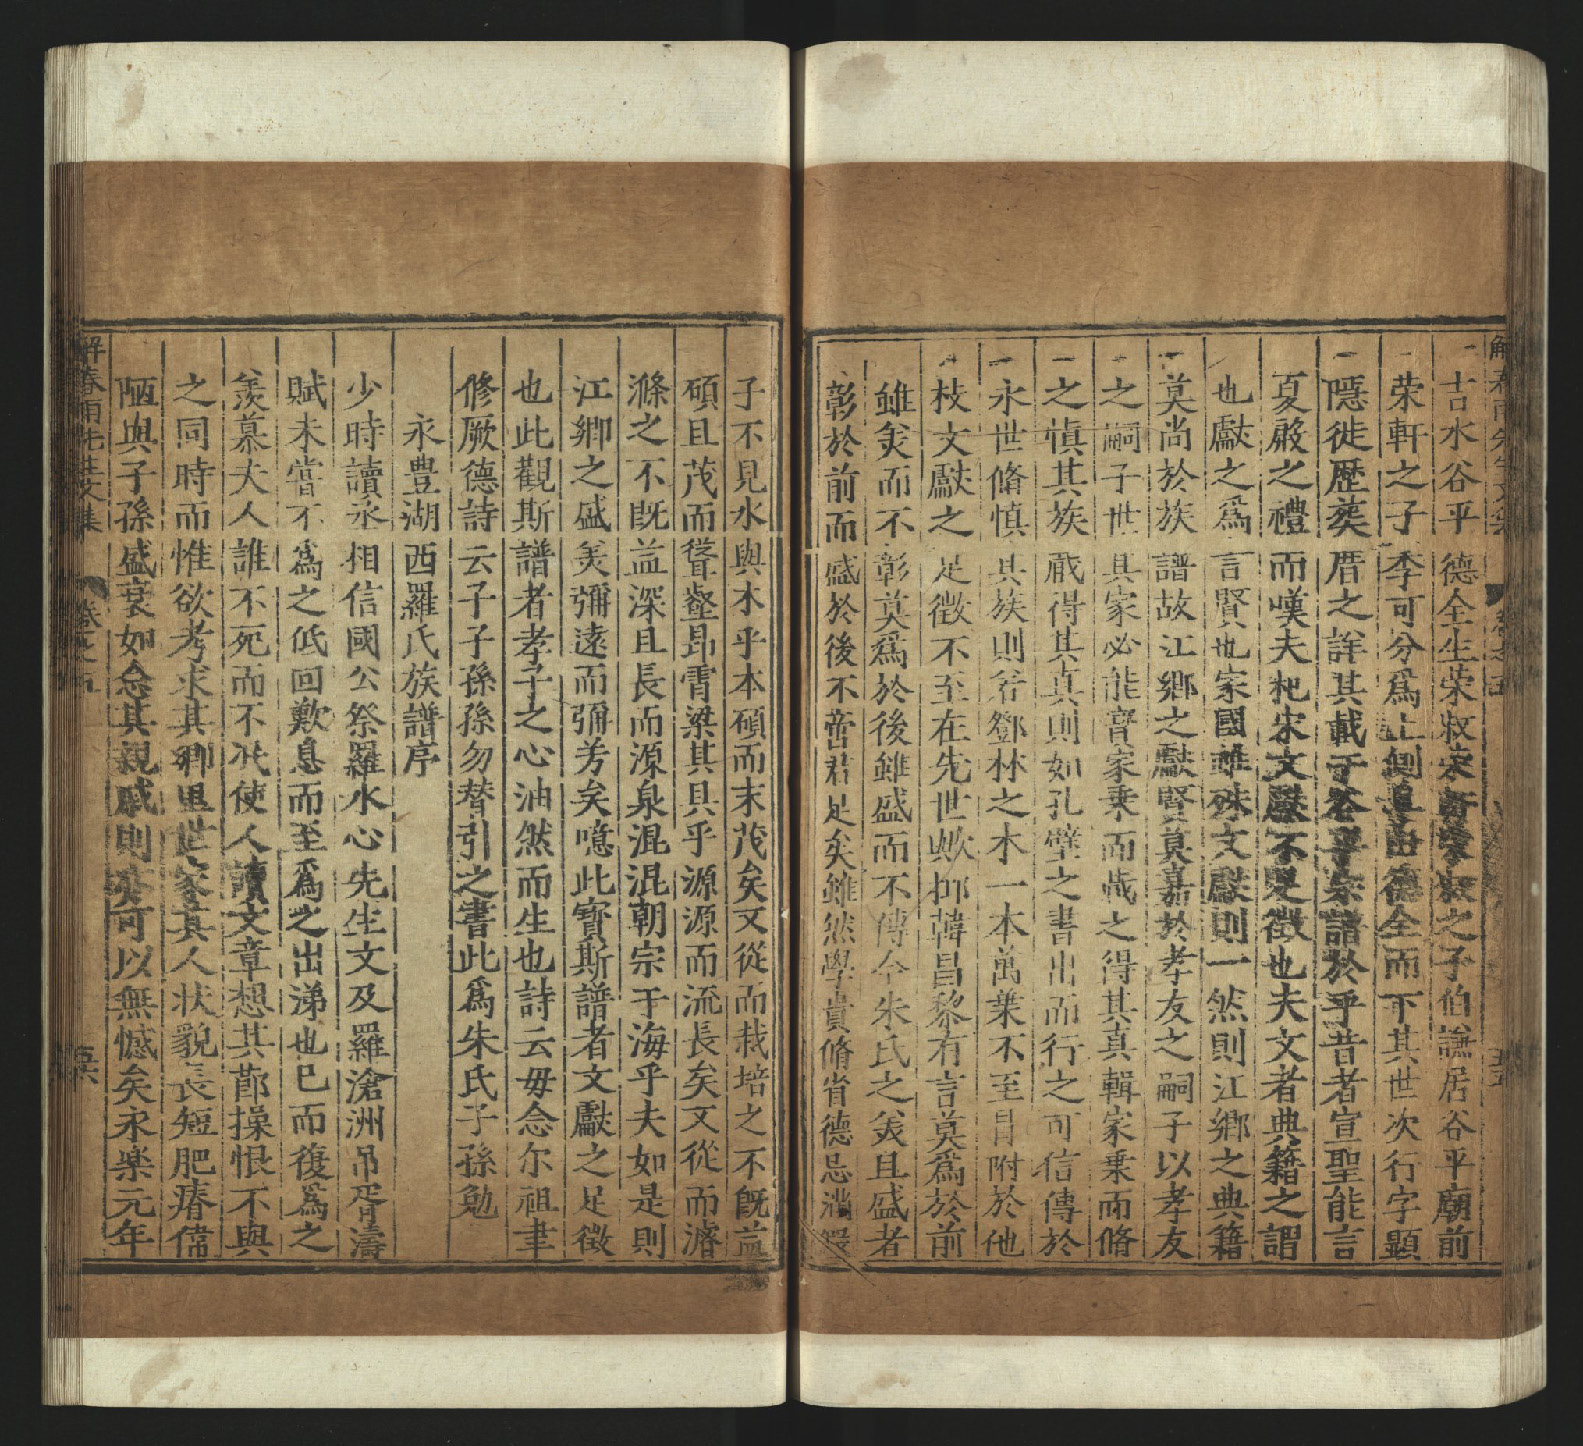 吉水谷平德全生荣叔荣軒荣叔之子伯謙居谷平廟前
荣軒之子李可分爲上側遵出德全而下其世次行字顯
隱徙歷葬厝之詳其載于谷平宗譜於乎昔者宣聖能言
夏殷之禮而嘆夫杞宋文獻不足徵也夫文者典籍之謂
也獻之爲言賢也家國雖殊文獻則一然則江鄉之典籍
莫尚於族譜故江鄉之獻賢莫嘉於孝友之嗣子以孝友
之嗣子世其家必能齊家乗而哉之得其真輯家乗而脩
之慎其族厥得其真則如孔壁之書出而行之可信傳於
永世脩慎其族則若鄧林之木一本萬葉不至冒附於他
枝文獻之足徵不至在先世歟抑韓昌黎有言莫爲於前
雖美而不彰莫爲於後雖盛而不傳今朱氏之美且盛者
彰於前而盛於後不啻君足矣雖然學貴脩省德忌滿
子不見水與木乎本碩而末茂矣又從而栽培之不既益
碩且茂而聳壑昂霄梁其具乎源源而流長矣又從而濬
滌之不既益深且長而源泉混混朝宗于海乎夫如是則
江鄉之盛美彌遠而彌芳矣噫此寳斯譜者文獻之足徵
也此觀斯譜者孝子之心油然而生也詩云毋念尔祖聿
修厥德詩云子子孫孫勿替引之書此爲朱氏子孫勉
永豊湖西羅氏族譜序
少時讀丞相信國公祭羅水心先生文及羅滄洲吊胥濤
賦未嘗不爲之低回歎息而至爲之出涕也已而復爲之
羡慕夫人誰不死而不能使人讀文章想其節操恨不與
之同時而惟欲考求其鄉里世家其人状貌長短肥瘠儒
陋與子孫盛衰如念其親戚則亦可以無憾矣永樂元年
解春雨先生文集 卷之五 五六